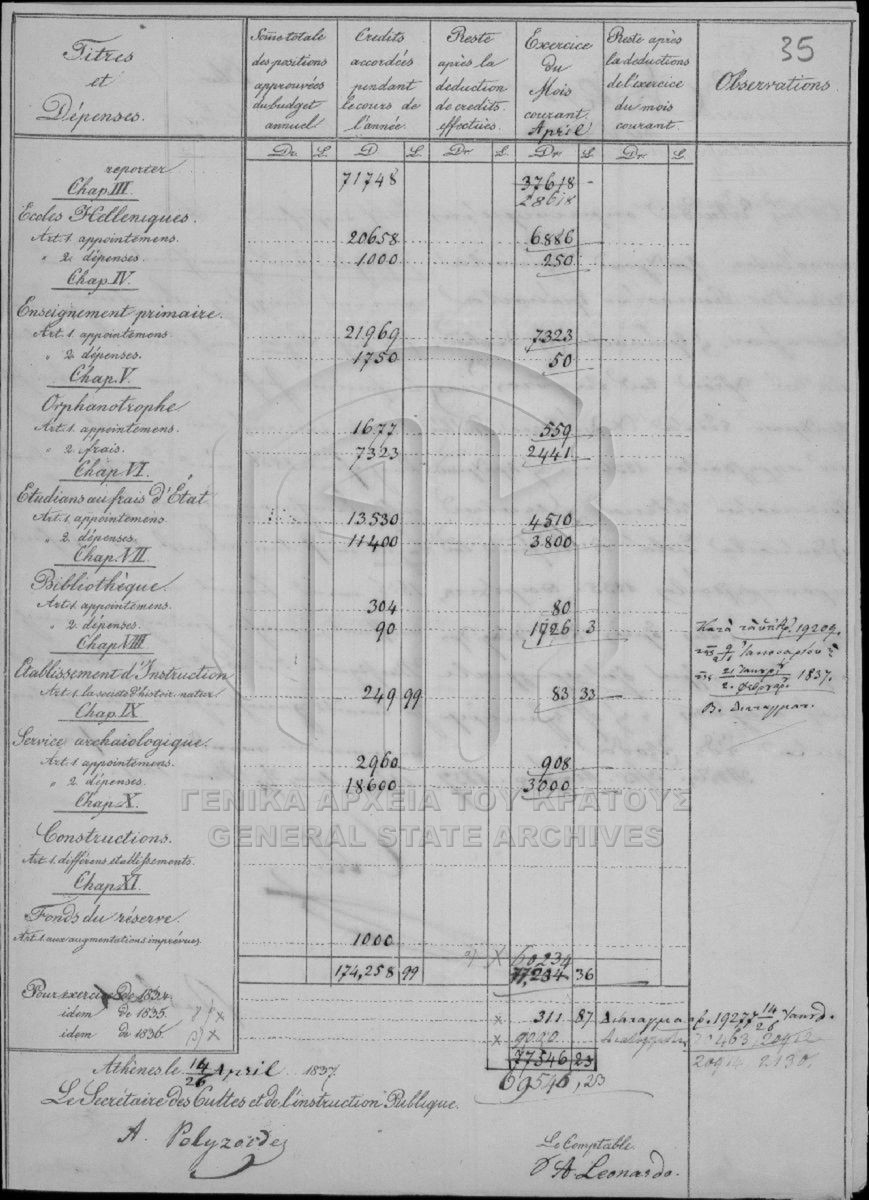 35
Titres et Dépenses.
Some totale des positions approuvées du budget annuel
Credits accordés pendant le cours de l'année.
Reste après la deduction de credits effectuées.
Exercice du Mois courant. April
Reste après la deductions de l'exercice du mois courant.
Observations.
Dr. L. D L Dr L. Dr L Dr. L.
reporter 71748 37618 -
28618
Chap. III.
Ecoles Helleniques.
Art. 1. appointemens. 20658 6886
" 2. dépenses. 1000 250
Chap. IV
Enseignement primaire.
Art. 1. appointemens. 21969 7323
" 2. dépenses. 1750 50
Chap. V.
Orphanotrophe
Art. 1. appointemens. 1677 559
" 2. frais. 7323 2441
Chap. VI.
Etudians au frais d'État
Art. 1. appointemens. 13530 4510
" 2. dépenses. 11400 3800
Chap. VII.
Bibliothèque.
Art. 1. appointemens. 304 80
" 2. dépenses. 90 1726 3 Κατά 19209.
Chap. VIII.
Ιανουαρίου
Etablissement d'Instruction
21 2. Φεβρουαρ. 1837.
Art. 1. la societé d'histoir. natur 249 99 83 33
Β. Διαταγματ.
Chap. IX
Service archaiologique.
Art. 1. appointemens. 2960 908
" 2. dépenses. 18600 3000
Chap. X.
ΓΕΝΙΚΑ ΑΡΧΕΙΑ ΤΟΥ ΚΡΑΤΟΥΣ
GENERAL STATE ARCHIVES
Constructions.
Art. 1. différens etablissements.
Chap. XI.
Fonds du réserve.
Art. 1. aux augmentations imprévues 1000
x 60234
174,258 99 77,234 36
Pour exercice de 1834.
idem de 1835. x 311 87 19277 14/26
idem de 1836. x
77546 23 20914 2130.
69546,23
Athènes le 14/26 April 1837
Le Secrétaire des Cultes et de l'instruction Publique.
A. Polyzoides
Le Comptable.
A. Leonardo.